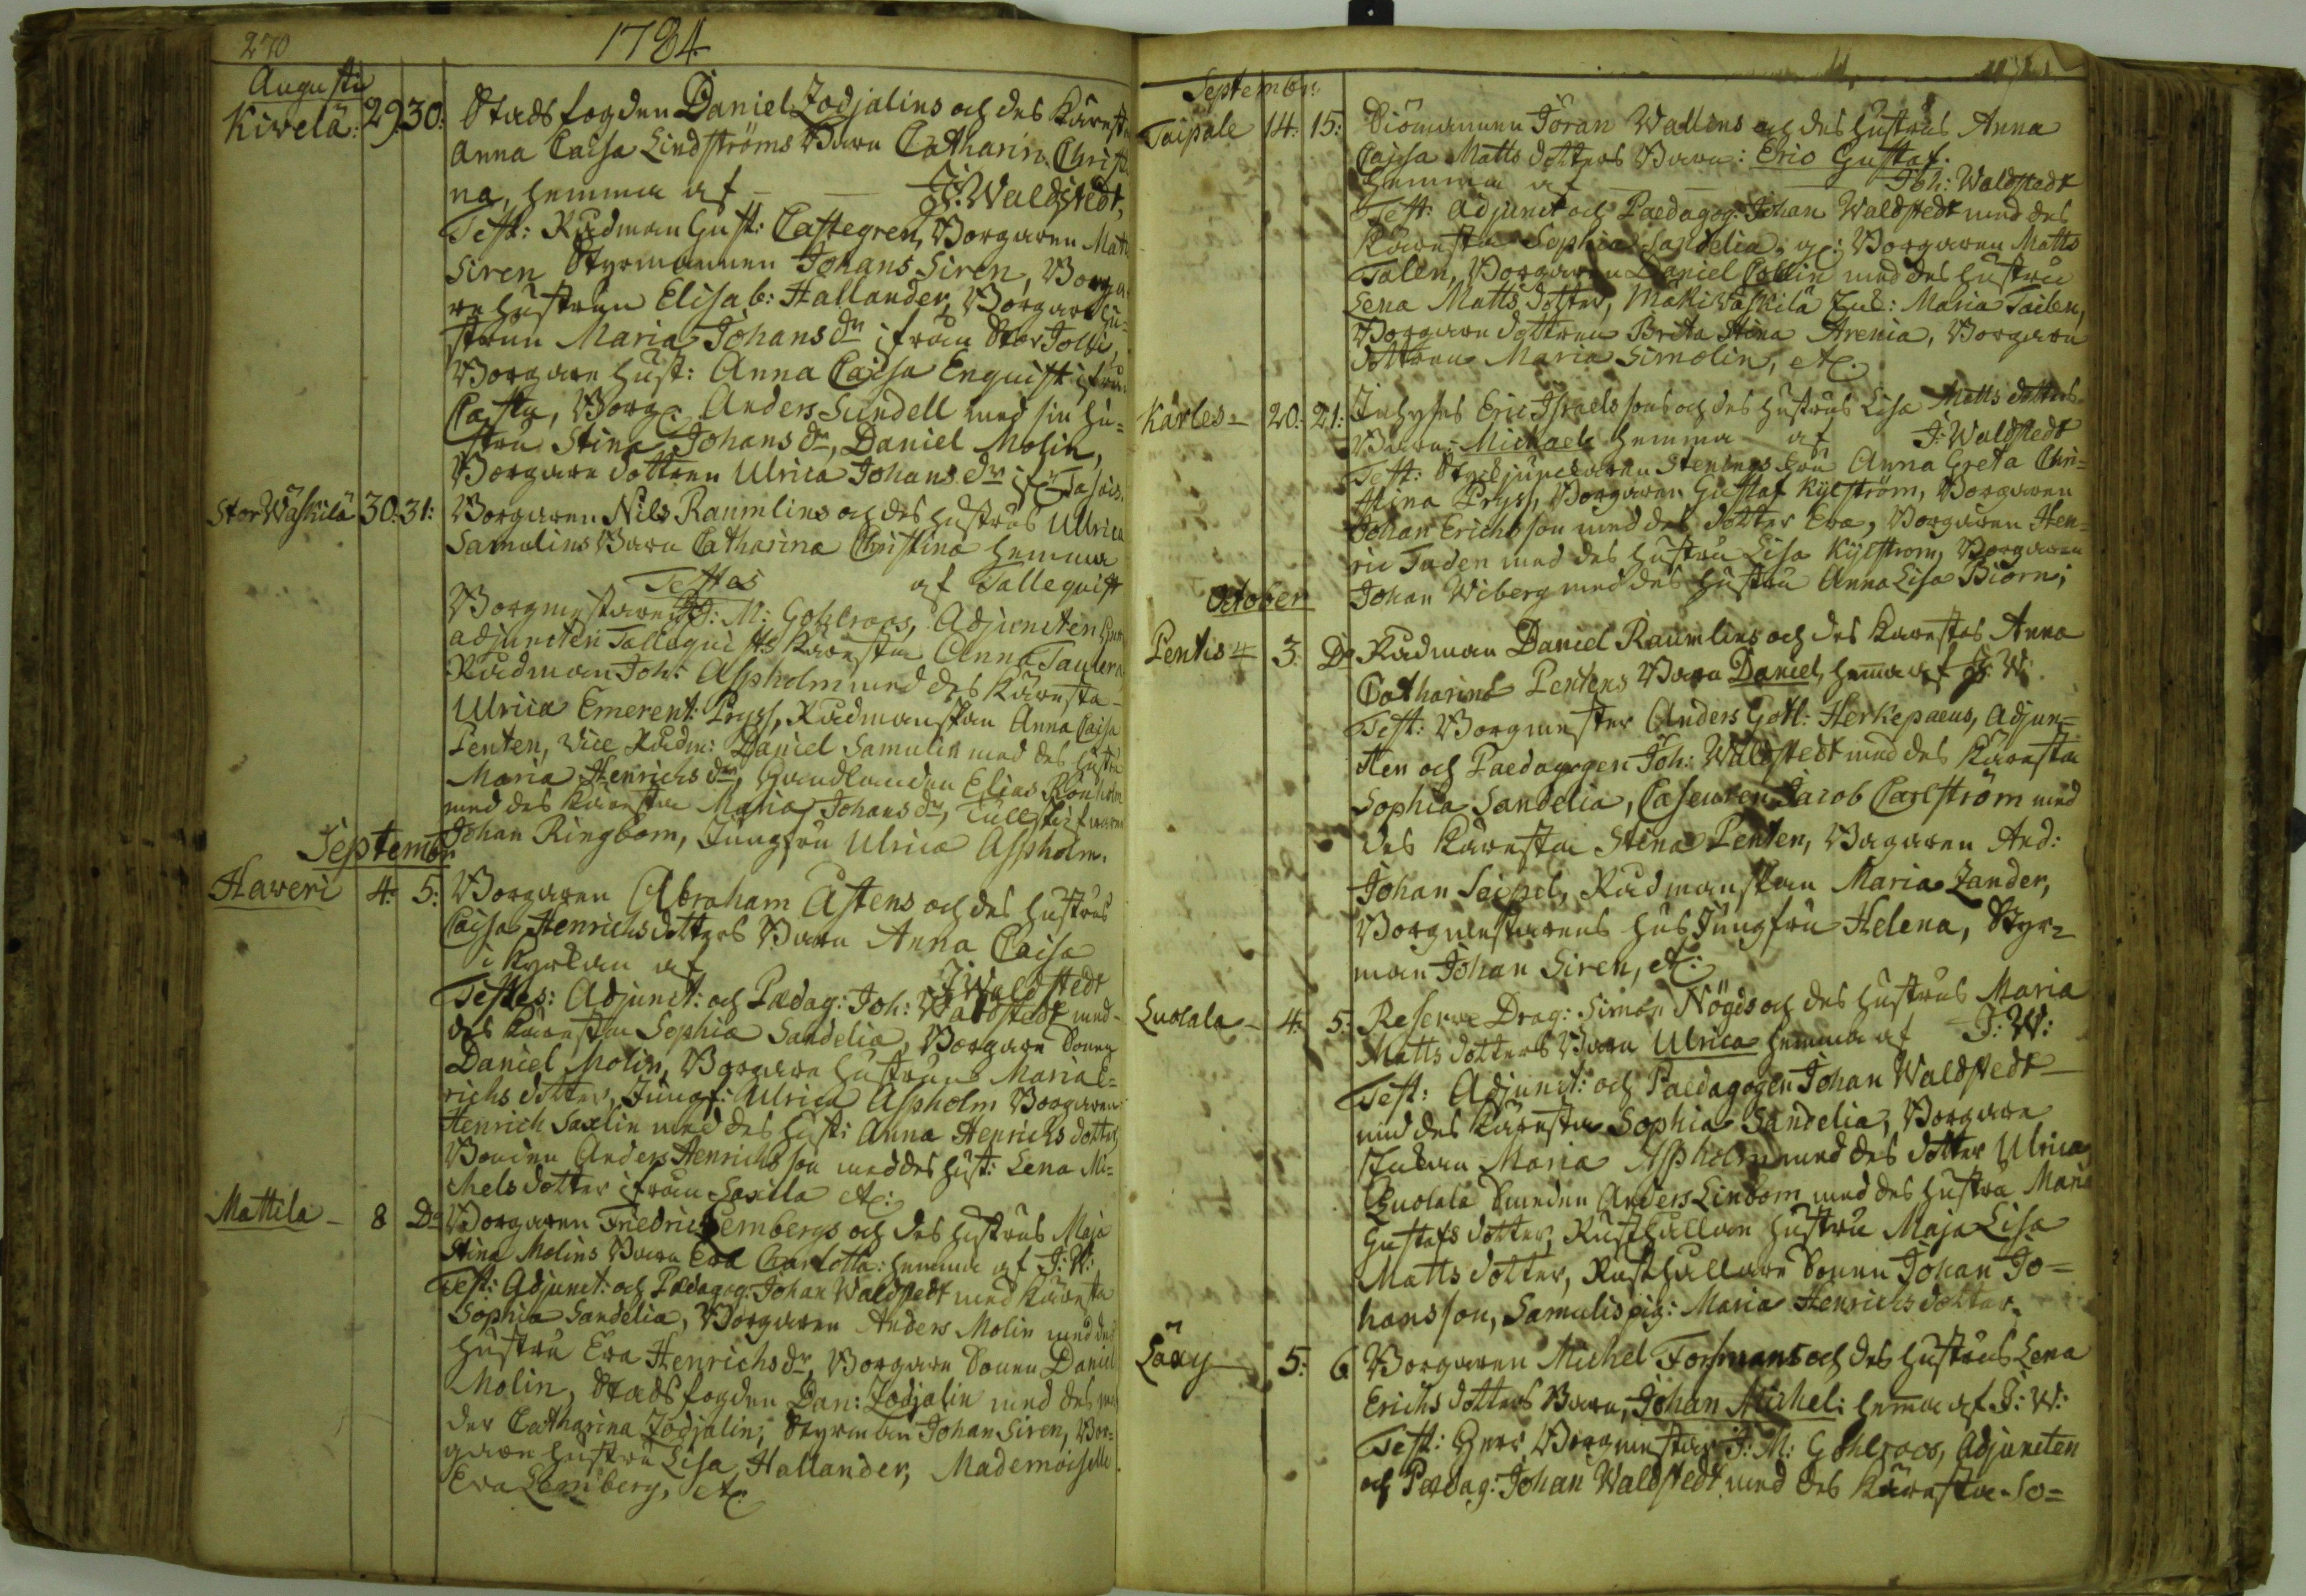 270
1784
Augusti
Kivelä: 29 30: Stads fogden Daniel Zodjalins och des Kiäresta
Anna Caisa Lindströms Barn Catharin. Christi
na, hemma af — — J: Waldstedt,
Test: Rådman Gust: Castegren, Borgaren Mats
Siren Styrmannen Johans Siren, Borga
re hustrun Elisab: Hallander, Borgare hu=
strun Maria Johans dr ifrån Stor Jolli,
Borgare hust: Anna Caisa Enquist ifrån
Casta, Borg: Anders Sundell med sin hu=
stru Stina Johans dr, Daniel Molin,
Borgare dottren Ulrica Johans dr
Stor Wäskilä 30: 31: Borgaren Nils Raumlins och des hustrus Ullrica
Samulins Barn Catharina Christina hemma
Testes af Tallequist
Borgmestaren J: M: Gohlroos, Adjuncten
adjuncten Tallequists Kiäresta Anna Taulera
Rådman Joh: Aspholm med des Kiäresta
Ulrica Emerent: Pryss, Rådmanskan Anna Caisa
Penten, Vice Rådm: Daniel Samulin med des hustru
Maria Henrichs dr, Handlanden Elias Rönholm
med des Kiäresta Maria Johans dr,
Johan Ringbom, Jungfru Ulrica Aspholm.
Septembr
Haveri 4: 5: Borgaren Abraham Astens och des hustrus
Caisa Henrichs dotters Barn Anna Caisa
i Kyrkan af J Waldstedt
Testes: Adjunct: och Pædag: Joh: Waldstedt med
des Kiäresta Sophia Sandelia, Borgare Sonen
Daniel Molin, Borgare hustrun Maria E=
richs dotter, Jungf: Ulrica Aspholm Borgaren
Henrich Saxlin med des hust: Anna Henrichs dotter
Bonden Anders Henrichs son med des hust: Lena Mi=
chels dotter ifrån Saxila etc:
Mattila — 8 Do Borgaren Friedric Lembergs och des hustrus Maja
Stina Molins Barn Eva Charlotta: hemma af J: W:
Test: Adjunct: och Pædagog: Johan Waldstedt med Kiäresta
Sophia Sandelia, Borgaren Anders Molin med des
hustru Eva Henrichs dr, Borgare Sonen Daniel
Molin, Stads fogden Dan: Zodjalin med des mo
der Catharina Zodjalin, Styrman Johan Siren, Bor=
garen hustru Lisa Hallander, Mademoiselle
Eva Lemberg, etc:
Septembr:
Taipale 14: 15: Siömannen Jöran Wallins och des hustrus Anna
Caisa Matts dotters Barn: Eric Gustaf.
hemma af — Joh: Waldstedt
Test: Adjunct och Paedagog: Johan Waldstedt med des
Kiäresta Sophia Sandelia, Borgaren Matts
Talen, Borgaren Daniel Collin med des hustru
Lena Matts dotter, Mäkiwäskilä Maria Tailen,
Borgare dottren Brita Stina Arenia, Borgare
dottren Maria Simolin, etc:
Karles — 20: 21: Inhyses Eric Israels sons och des hustrus Lisa Matts dotters
Barn: Michael hemma af J: Waldstedt
Test: Anna Greta Chri=
stina Pryss, Borgaren Gustaf Kylström, Borgaren
Johan Erichsson med des dotter Eva, Borgaren Hen=
ric Taden med des hustru Lisa Kylstrom, Borgaren
Johan Wiberg med des hustru Anna Lisa Biörn;
October
Pentis 3. Do Rådman Daniel Raumlins och des Kärestas Anna
Catharina Pentens Barn Daniel, hemma af J: W.
Test: Borgmester Anders Gotl: Herkepaeus, Adjun=
cten och Paedagogen Joh: Waldstedt med des Kiäresta
Sophia Sandelia, Caseuren Jacob Carlström med
des Käresta Stina Penten, Bagaren And:
Johan Seipel, Rådmanskan Maria Zander,
Borgmestarens hus Jungfru Helena, Styr=
man Johan Siren, etc:
Luolala — 4: 5: Reserve Drag: Simon Nögds och des hustrus Maria
Matts dotters Barn Ulrica hemma af J: W:
Test: Adjunct: och Paedagogen Johan Waldstedt
med des Käresta Sophia Sandelia, Borgare
Maria Aspholm med des dotter Ulrica
Luolala Smeden Anders Linbom med des hustru Maria
Gustafs dotter, Rusthållare hustru Maja Lisa
Matts dotter, Rusthållare Sonen Johan Jo=
hansson, Samulis pig: Maria Henrichs dotter.
Läxy — 5: 6 Borgaren Michel Forsmans och des hustrus Lena
Erichs dotters Barn, Johan Michel: hemma af J: W:
Test: Herr Borgmestar J: M: Gohlroos, Adjuncten
och Pædag: Johan Waldstedt med des Käresta So=